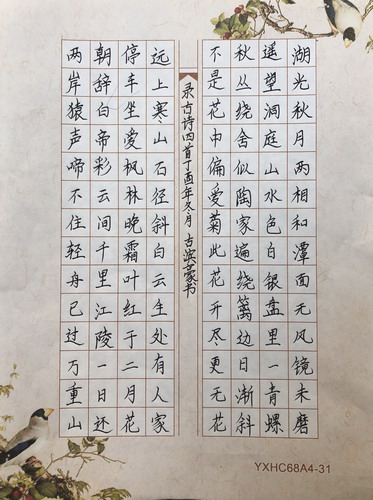 湖光秋月两相和潭面无风镜未磨
遥望洞庭山水色白银盘里一青螺
秋丛绕舍似陶家遍绕篱边日渐斜
不是花中偏爱菊此花开尽更无花
录古诗四首丁酉年冬月 古滨豪书
远上寒山石径斜白云生处有人家
停车坐爱枫林晚霜叶红于二月花
朝辞白帝彩云间千里江陵一日还
两岸猿声啼不住轻舟已过万重山
YXHC68A4-31